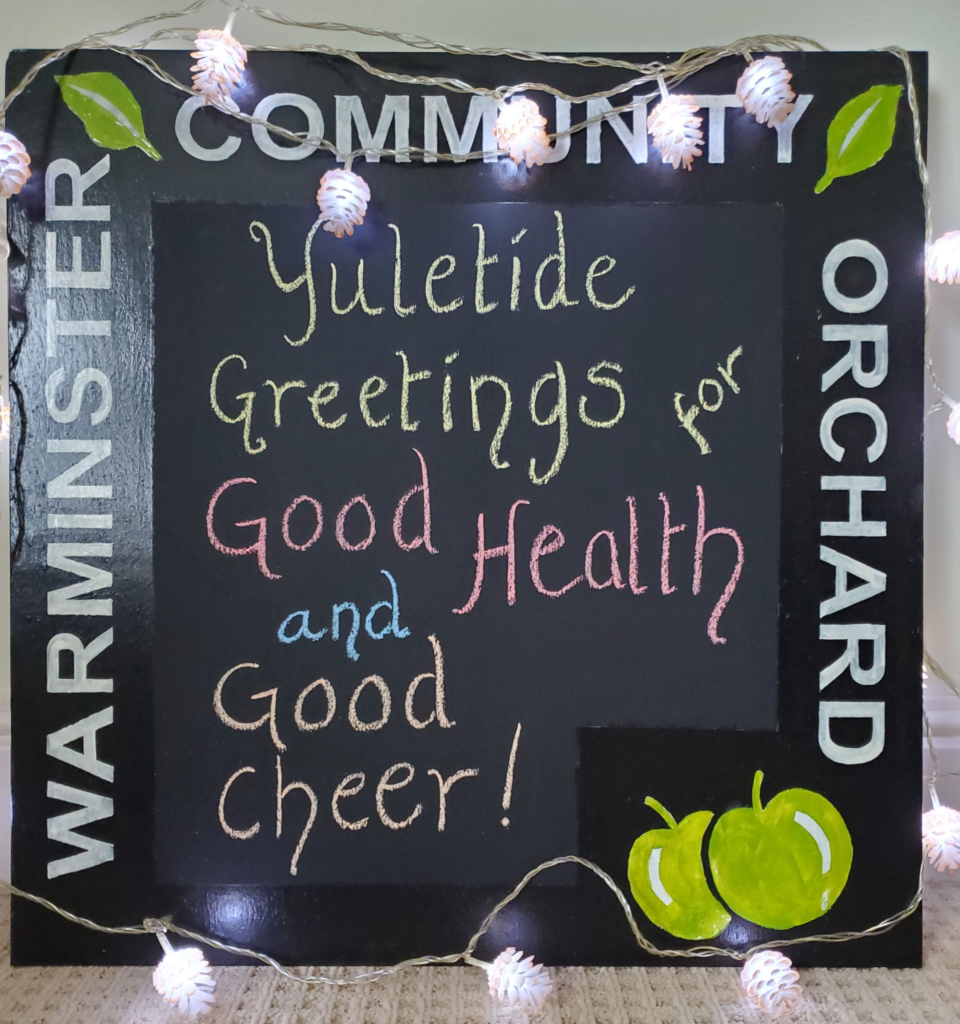 WARMINSTER
COMMUNITY
ORCHARD
Yuletide
Greetings for
Good Health
and
Good
Cheer!